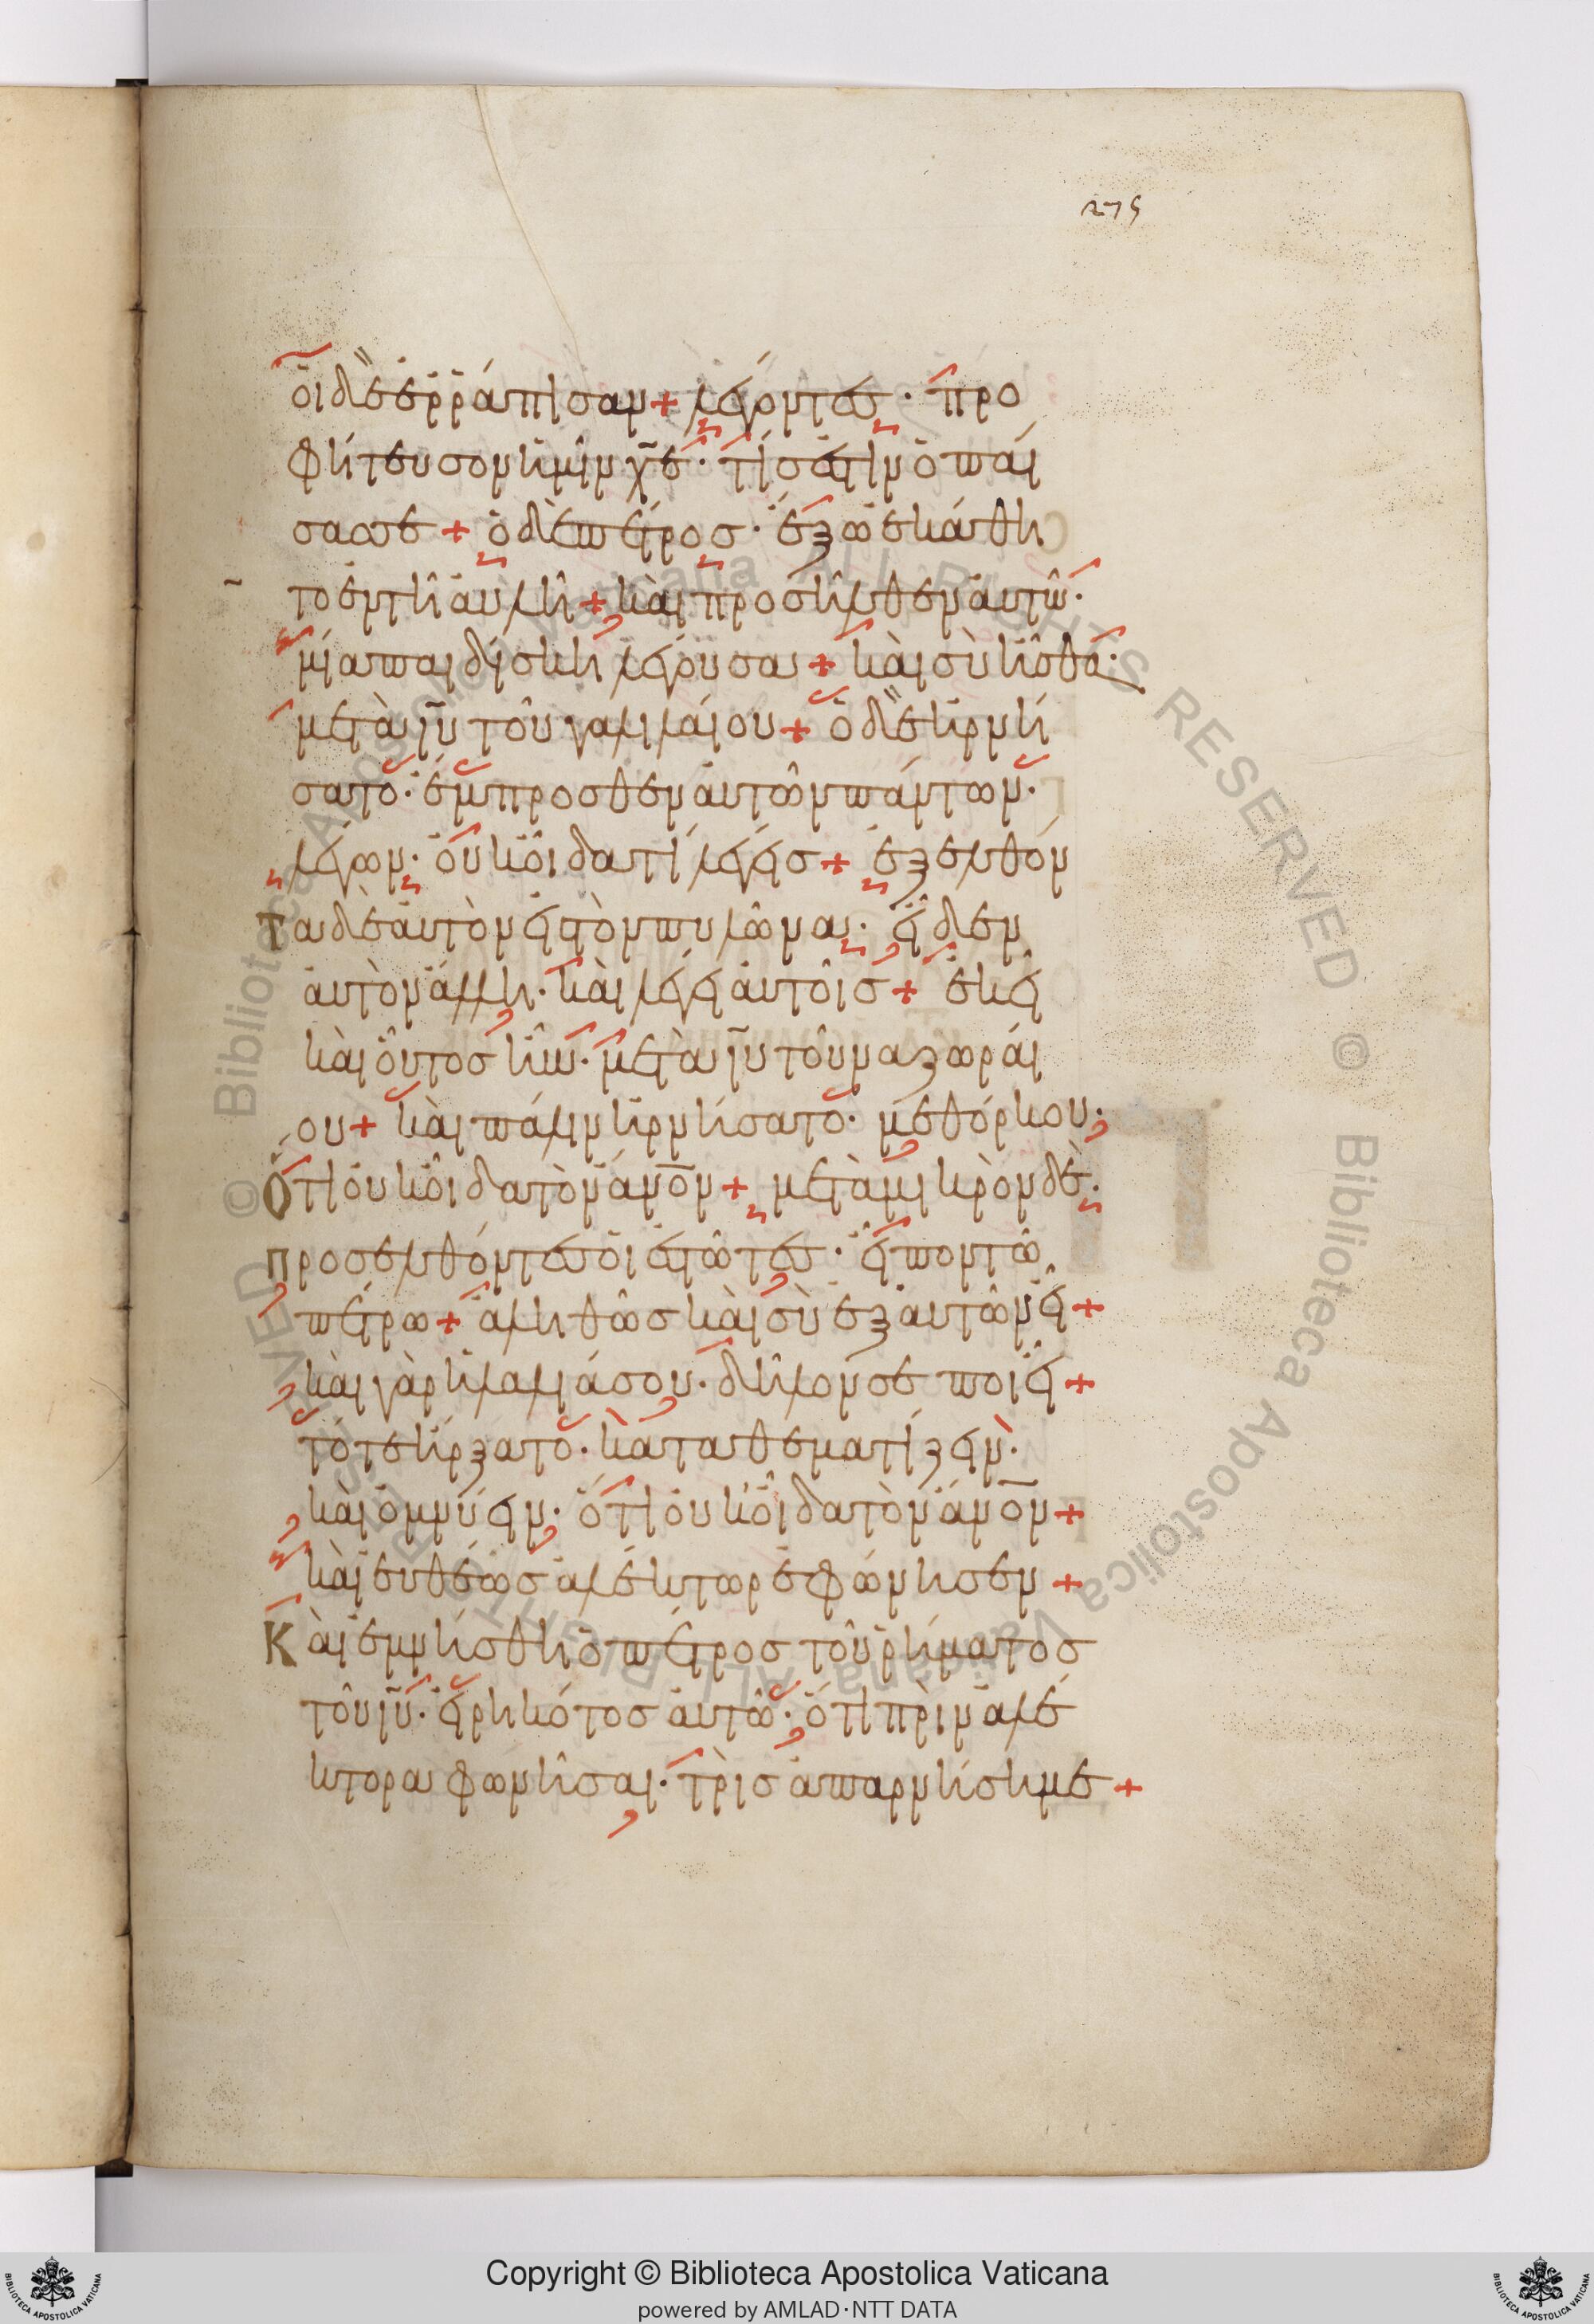 275
οἱ δὲ ἐρράπισαν + λέγοντες · προ
φήτευσον ἡμῖν χ̅ε̅ · τίς ἐστιν ὁ παί
σας σε + ὁ δὲ πέτρος · ἔξω ἐκάθη
το ἐν τῆ αὐλῆ + καὶ προσῆλθεν αὐτῶ ·
μία παιδίσκη λέγουσα + καὶ σὺ ἦσθα ·
μετὰ ι̅υ̅ τοῦ γαλιλαίου + ὁ δὲ ἠρνή
σατο · ἔμπροσθεν αὐτῶν πάντων ·
λέγων · οὐκ οἶδα τί λέγεις + ἐξελθόν
τα δὲ αὐτὸν εἰς τὸν πυλῶνα · εἶδεν
αὐτὸν ἄλλη · καὶ λέγει αὐτοῖς + ἐκεῖ
καὶ οὗτος ἦν · μετὰ ι̅υ̅ τοῦ ναζωραί
ου + καὶ πάλιν ἠρνήσατο · μεθ όρκου ·
Ὅτι οὐκ οἶδα τὸν ἄ̅ν̅ο̅ν̅ + μετὰ μικρὸν δὲ ·
προσελθόντες οἱ ἑστῶτες · εἶπον τῶ
πέτρω + ἀληθῶς καὶ σὺ ἐξ αὐτῶν εἶ +
καὶ γὰρ ἡ λαλιά σου · δῆλόν σε ποιεῖ +
τότε ἤρξατο · καταθεματίζειν ·
καὶ ὀμνύειν · ὅτι οὐκ οἶδα τὸν ἄ̅ν̅ο̅ν̅ +
καὶ εὐθέως ἀλέκτωρ ἐφώνησεν +
Καὶ ἐμνήσθη ὁ πέτρος τοῦ ῥήματος
τοῦ ι̅υ̅ · εἰρηκότος αὐτῶ · ὅτι πρὶν ἀλέ
κτορα φωνῆσαι · τρὶς ἀπαρνήση με +
Copyright © Biblioteca Apostolica Vaticana
powered by AMLAD·NTT DATA